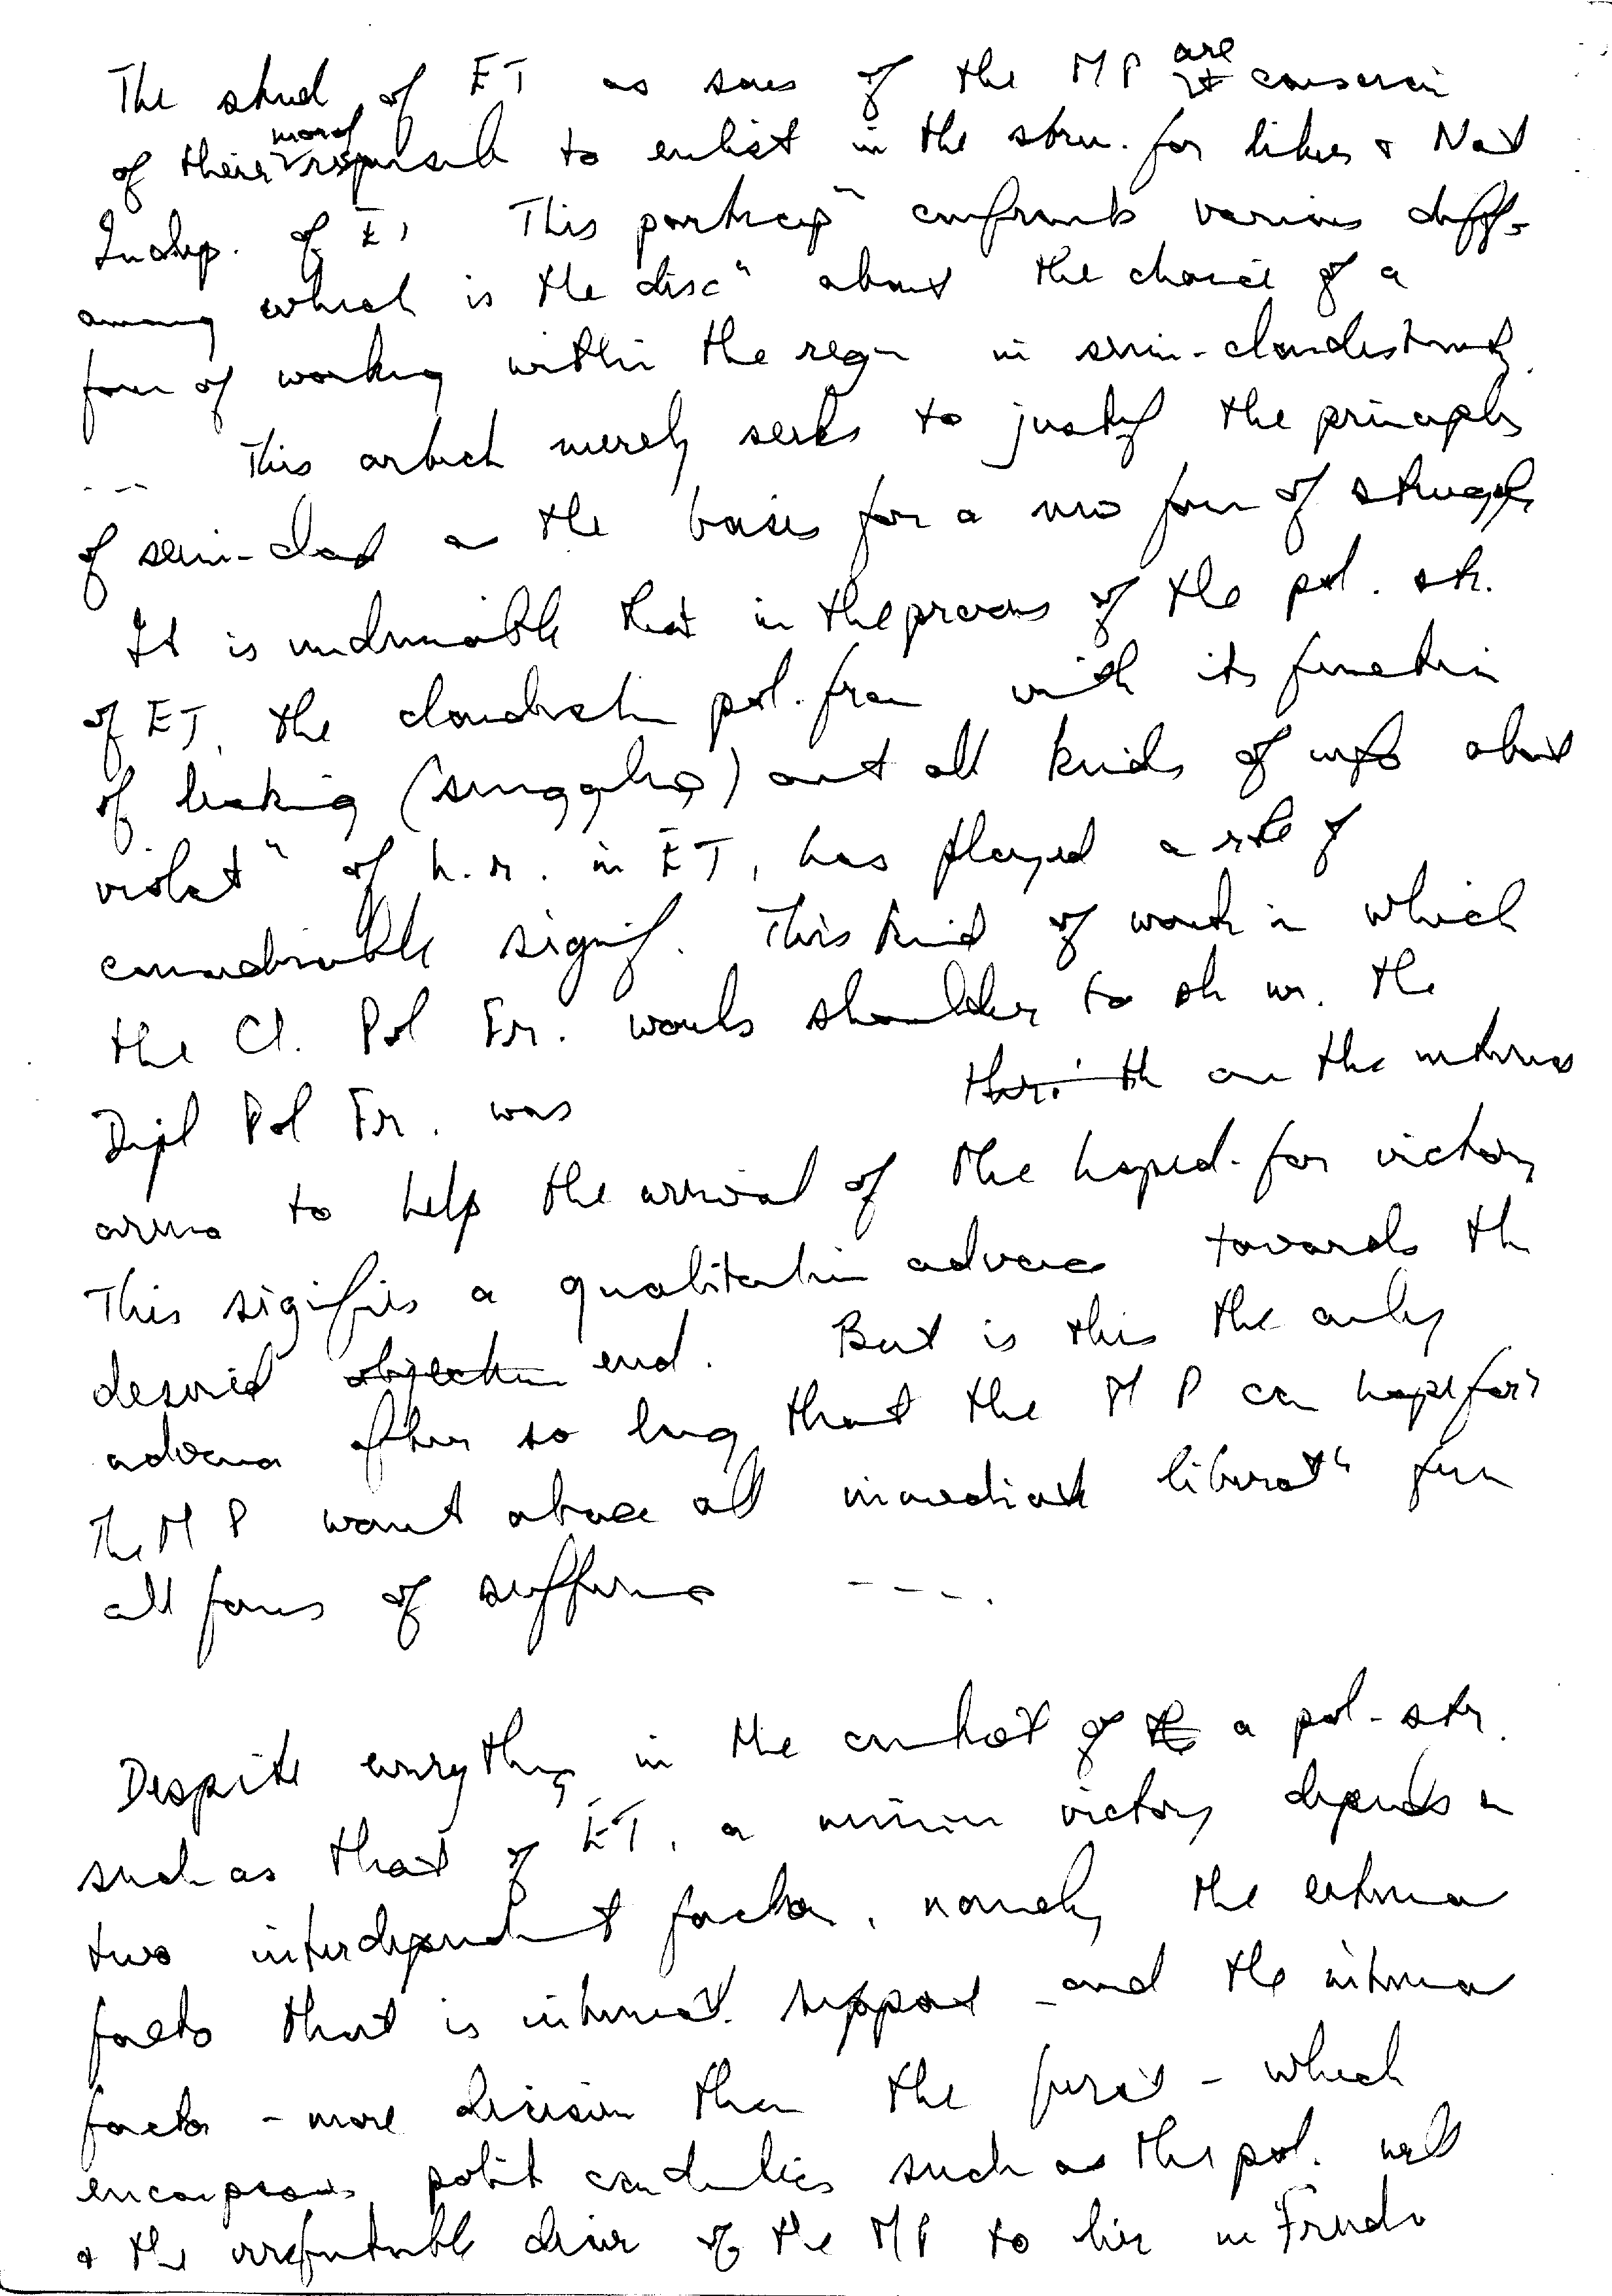 The stud of ET as sons of the MP are conscien
of their moral responsib to enlist in the stru. for liber & Nat
Indep. of ET This particip confronts various diff-
among which is the disc about the choice of a
form of working within the region in semi-clandestinity.
--- This article merely seeks to justify the principles
of semi-cland as the basis for a new form of struggle
It is undeniable that in the process of the pol. str.
of ET, the clandestine pol. fron with its function
of leaking (smuggling) out all kinds of info about
violat of h.r. in ET, has played a role of
considerable signif. This kind of work in which
the Cl. Pol Fr. works shoulder to sh w. the
Dipl Pol Fr. was on the internal
arena to help the arrival of the hoped-for victory
This signifies a qualitative advance towards the
desired objective end. But is this the only
advance after so long that the MP can hope for?
The MP want above all immediate liberat from
all forms of suffering ---.
Despite everything, in the context of a pol-str.
such as that of ET, a victory depends on
two interdependent factors, namely the external
factor that is internat. support - and the internal
factor - more decisive than the first - which
encompasses polit conditions such as the pol. will
& the irrefutable desire of the MP to live in Freedo